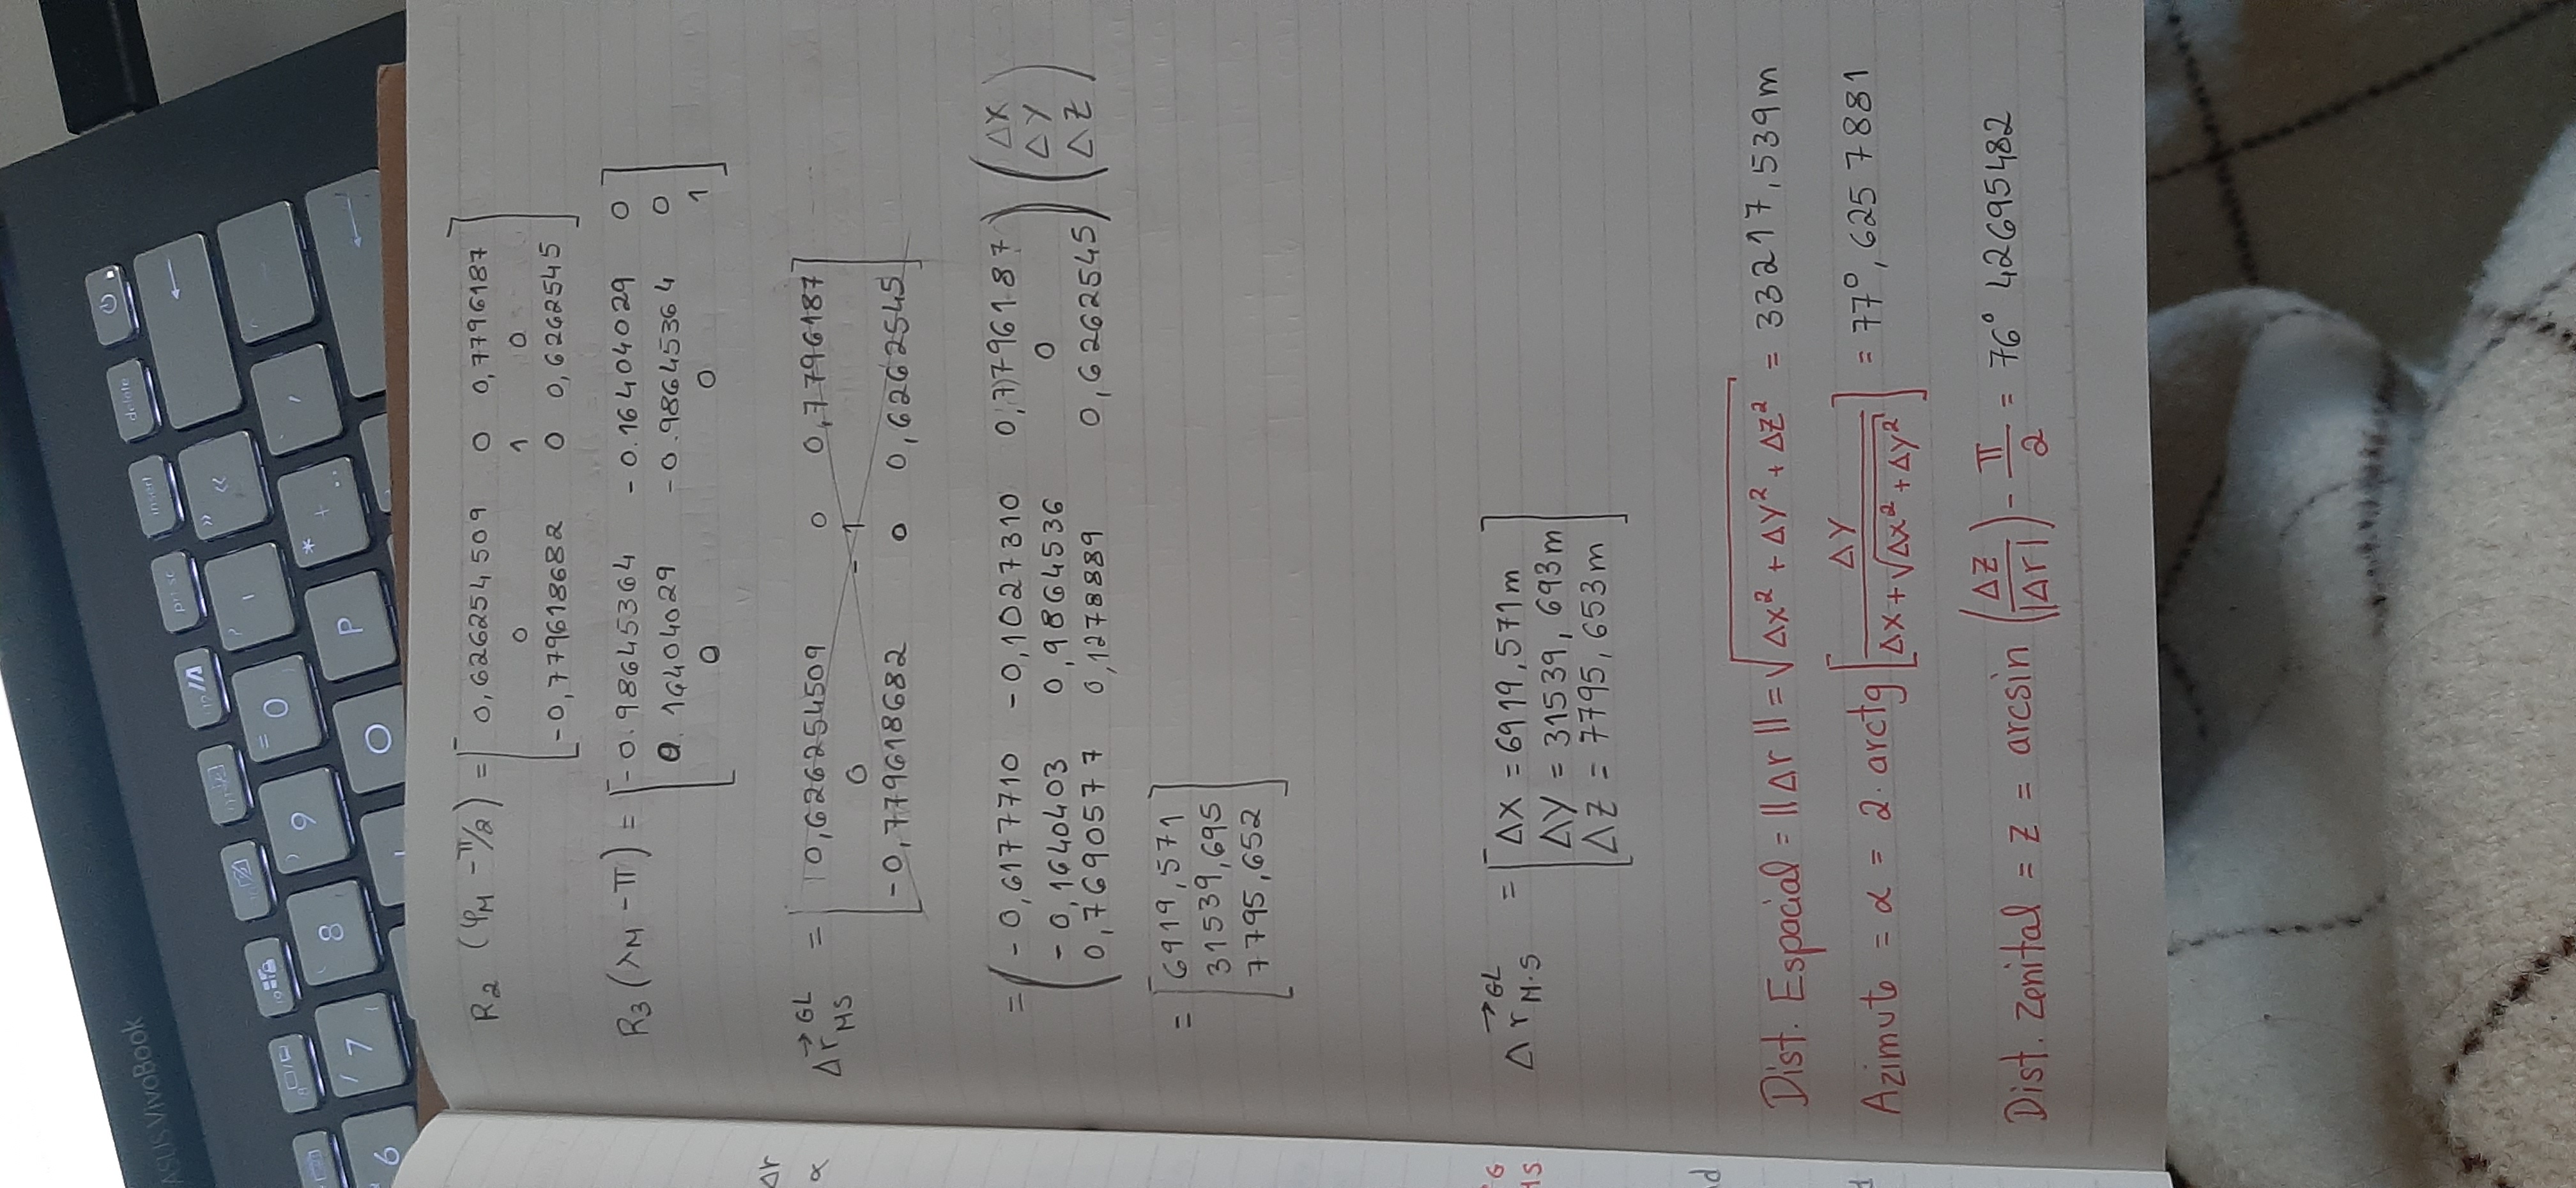 ASUS VivoBook
prt sc insert delete
6 7 8 9 0
O P
R2 (φM - π/2) = [ 0,626254509 0 0,7796187
0 1 0
-0,779618682 0 0,6262545 ]
R3 (λM - π) = [ -0.98645364 -0.16404029 0
0.16404029 -0.98645364 0
0 0 1 ]
Δr
α
Δr⃗ GL MS = [ 0,626254509 0 0,7796187
0 - 1
-0,779618682 0 0,6262545 ]
= ( -0,6177710 -0,1027310 0,7796187 ) ( ΔX
-0,1640403 0,9864536 0 ΔY
0,7690577 0,1278889 0,6262545 ΔZ )
= [ 6919,571
31539,695
7795,652 ]
G
MS
Δr⃗ GL M.S = [ ΔX = 6919,571m
ΔY = 31539,693m
ΔZ = 7795,653m ]
Dist. Espacial = ||Δr|| = √ΔX² + ΔY² + ΔZ² = 33217,539m
Azimute = α = 2. arctg [ ΔY / ΔX + √ΔX² + ΔY² ] = 77°,6257881
Dist. Zenital = Z = arcsin (ΔZ / |Δr|) - π/2 = 76° 42695482